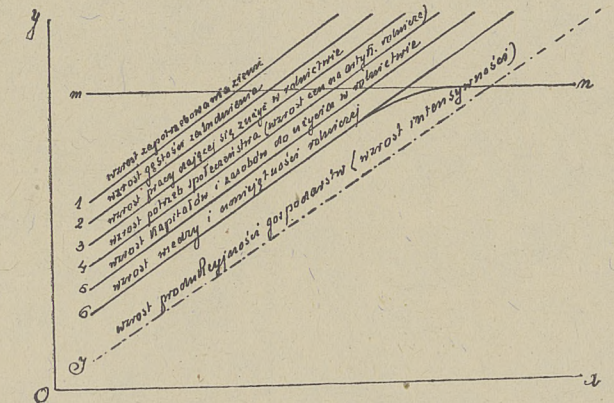 y
m
n
wzrost zapotrzebowania ziemi
1
wzrost gęstości zaludnienia
2
wzrost pracy dającej się zużyć w rolnictwie
3
wzrost potrzeb społeczeństwa (wzrost cen na artyk. rolnicze)
4
wzrost kapitałów i zasobów do użycia w rolnictwie
5
wzrost wiedzy i umiejętności rolniczej
6
wzrost produkcyjności gospodarstw (wzrost intensywności)
O
x